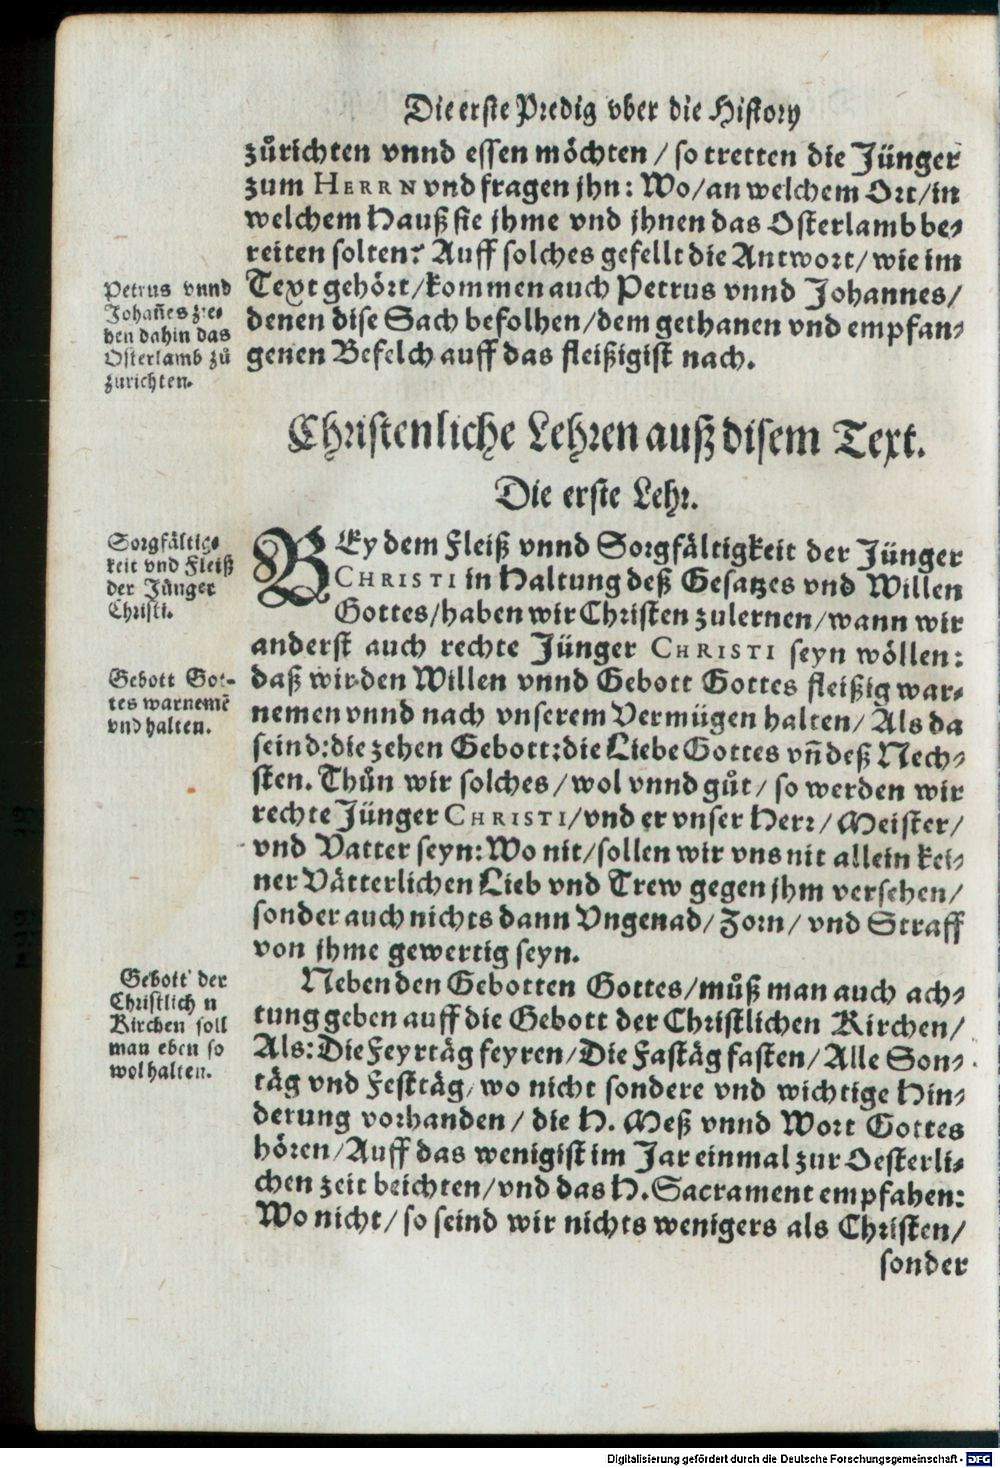 Die erste Predig vber die History
zůrichten vnnd essen möchten / so tretten die Jünger
zum HERRN vnd fragen jhn: Wo/an welchem Ort/in
welchem Hauß sie jhme vnd jhnen das Osterlamb be-
reiten solten? Auff solches gefellt die Antwort/wie im
Text gehört/kommen auch Petrus vnnd Johannes/
denen dise Sach befolhen/dem gethanen vnd empfan-
genen Befelch auff das fleißigist nach.
Petrus vnnd
Johañes zie-
hen dahin das
Osterlamb zů
zurichten.
Christenliche Lehren auß disem Text.
Die erste Lehr.
BEy dem Fleiß vnnd Sorgfältigkeit der Jünger
CHRISTI in Haltung deß Gesatzes vnd Willen
Gottes/haben wir Christen zulernen/wann wir
anderst auch rechte Jünger CHRISTI seyn wöllen:
daß wir den Willen vnnd Gebott Gottes fleißig war-
nemen vnnd nach vnserem Vermügen halten/Als da
seind:die zehen Gebott:die Liebe Gottes vñ deß Nech-
sten. Thůn wir solches/wol vnnd gůt/so werden wir
rechte Jünger CHRISTI/vnd er vnser Herr/Meister/
vnd Vatter seyn:Wo nit/sollen wir vns nit allein kei-
ner Vätterlichen Lieb vnd Trew gegen jhm versehen/
sonder auch nichts dann Vngenad/Zorn/vnd Straff
von jhme gewertig seyn.
Sorgfältig-
keit vnd Fleiß
der Jünger
Christi.
Gebott Got-
tes warnemẽ
vnd halten.
Neben den Gebotten Gottes/můß man auch ach-
tung geben auff die Gebott der Christlichen Kirchen/
Als:Die Feyrtäg feyren/Die Fastäg fasten/Alle Son-
täg vnd Festtäg/wo nicht sondere vnd wichtige Hin-
derung vorhanden/die H. Meß vnnd Wort Gottes
hören/Auff das wenigist im Jar einmal zur Oesterli-
chen zeit beichten/vnd das H. Sacrament empfahen:
Wo nicht/so seind wir nichts wenigers als Christen/
sonder
Gebott der
Christlich n
Kirchen soll
man eben so
wol halten.
Digitalisierung gefördert durch die Deutsche Forschungsgemeinschaft - DFG